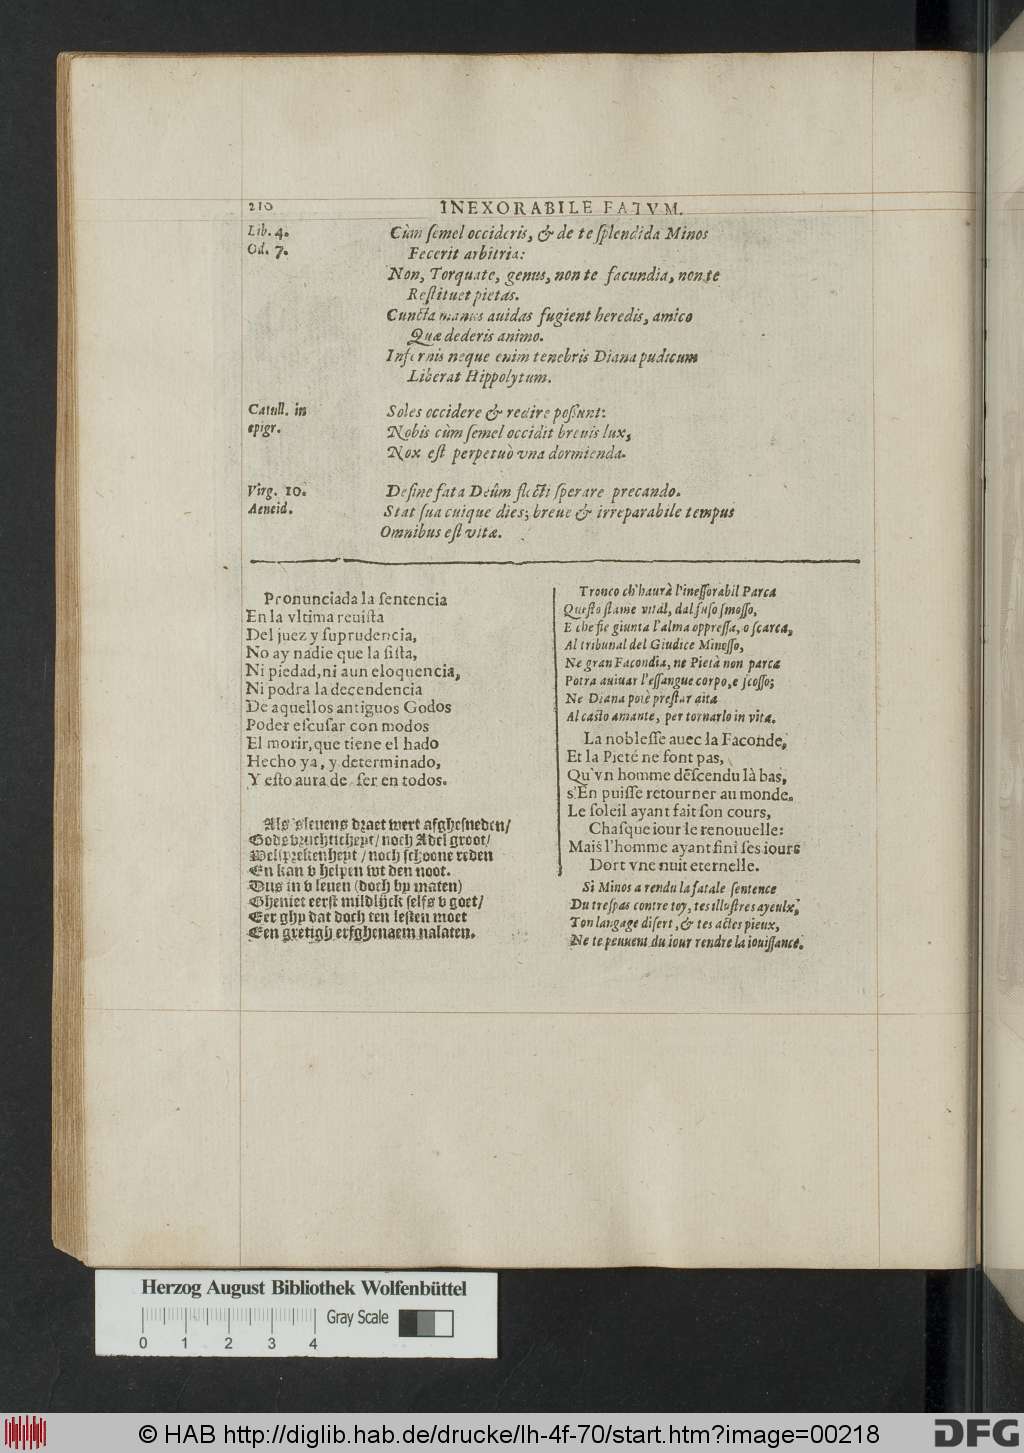 210
INEXORABILE FATVM.
Lib. 4.
Od. 7.
Cùm ſemel occideris, & de te ſplendida Minos
Fecerit arbitria:
Non, Torquate, genus, non te facundia, non te
Reſtituet pietas.
Cuncta manus auidas fugient heredis, amico
Quæ dederis animo.
Infernis neque enim tenebris Diana pudicum
Liberat Hippolytum.
Catull. in
epigr.
Soles occidere & redire poſſunt:
Nobis cùm ſemel occidit breuis lux,
Nox eſt perpetuò vna dormienda.
Virg. 10.
Aeneid.
Deſine fata Deûm flecti ſperare precando.
Stat ſua cuique dies; breue & irreparabile tempus
Omnibus eſt vitæ.
Pronunciada la ſentencia
En la vltima reuiſta
Del juez y ſuprudencia,
No ay nadie que la ſiſta,
Ni piedad, ni aun eloquencia,
Ni podra la decendencia
De aquellos antiguos Godos
Poder eſcuſar con modos
El morir, que tiene el hado
Hecho ya, y determinado,
Y eſto aura de ſer en todos.
Als 'sleuens draet wert afgheſneden/
Godsvruchticheyt/ noch Adel groot/
Welſprekenheyt/ noch ſchoone reden
En kan v helpen wt den noot.
Dus in v leuen (doch by maten)
Gheniet eerſt mildlijck ſelfs v goet/
Eer ghy dat doch ten leſten moet
Een gretigh erfghenaem nalaten.
Tronco ch'haurà l'ineſſorabil Parca
Queſto ſtame vital, dal fuſo ſmoſſo,
E che fie giunta l'alma oppreſſa, o ſcarca,
Al tribunal del Giudice Minoſſo,
Ne gran Facondia, ne Pietà non parca
Potra auiuar l'eſſangue corpo, e ſcoſſo;
Ne Diana potè preſtar aita
Al caſto amante, per tornarlo in vita.
La nobleſſe auec la Faconde,
Et la Pieté ne font pas,
Qu'vn homme deſcendu là bas,
s'En puiſſe retourner au monde.
Le ſoleil ayant fait ſon cours,
Chaſque iour le renouuelle:
Mais l'homme ayant fini ſes iours
Dort vne nuit eternelle.
Si Minos a rendu la fatale ſentence
Du treſpas contre toy, tes illuſtres ayeulx,
Ton langage diſert, & tes actes pieux,
Ne te peuuent du iour rendre la iouiſſance.
Herzog August Bibliothek Wolfenbüttel
Gray Scale
0 1 2 3 4
© HAB http://diglib.hab.de/drucke/lh-4f-70/start.htm?image=00218
DFG